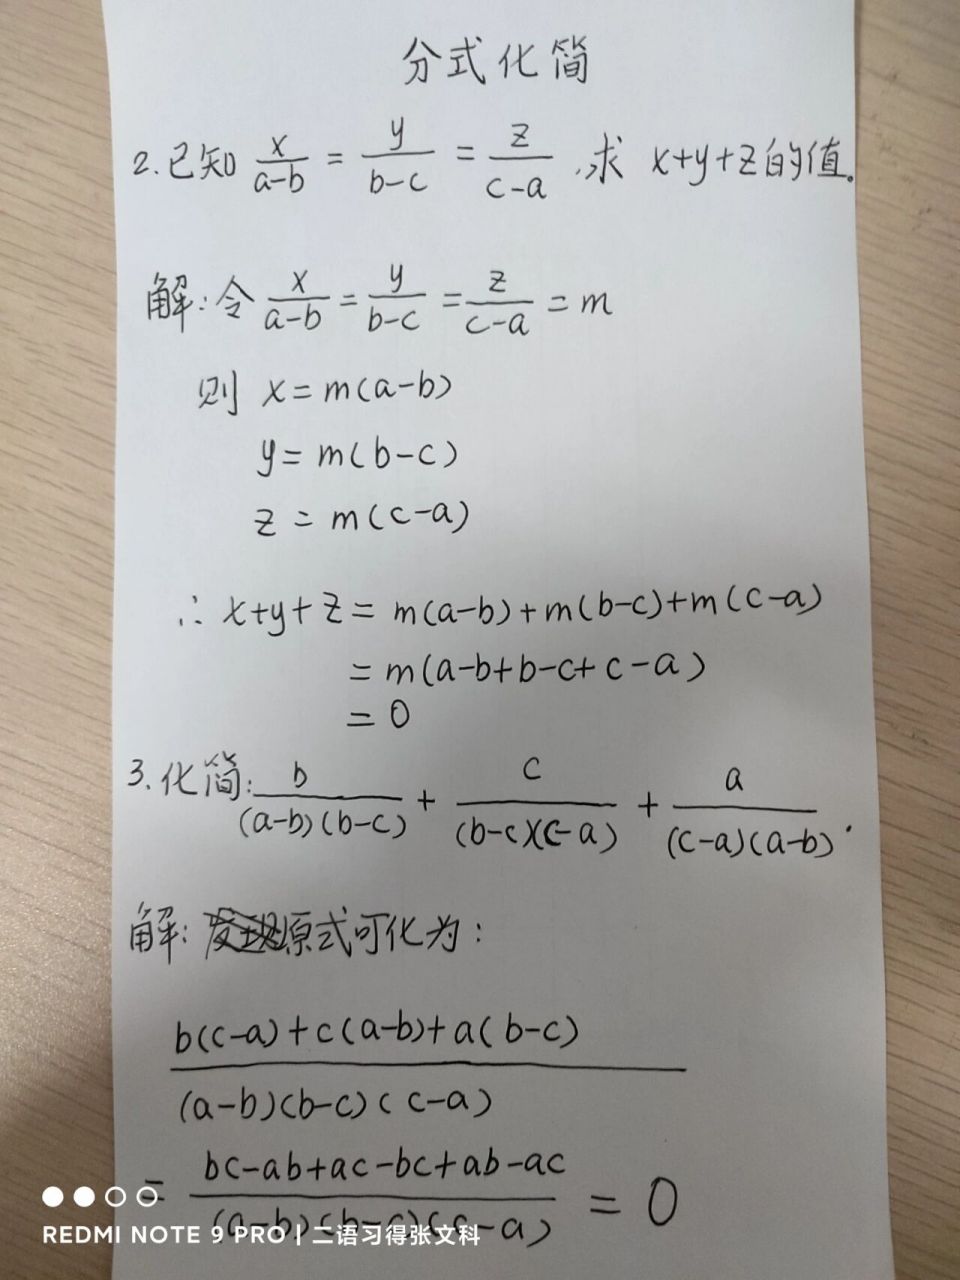 分式化简
2.已知 x/(a-b) = y/(b-c) = z/(c-a) ,求 x+y+z的值。
解:令 x/(a-b) = y/(b-c) = z/(c-a) = m
则 x=m(a-b)
y=m(b-c)
z=m(c-a)
∴ x+y+z=m(a-b)+m(b-c)+m(c-a)
=m(a-b+b-c+c-a)
=0
3.化简: b/((a-b)(b-c)) + c/((b-c)(c-a)) + a/((c-a)(a-b)).
解:原式可化为:
b(c-a)+c(a-b)+a(b-c)
(a-b)(b-c)(c-a)
= bc-ab+ac-bc+ab-ac/((a-b)(b-c)(c-a)) = 0
REDMI NOTE 9 PRO | 二语习得张文科